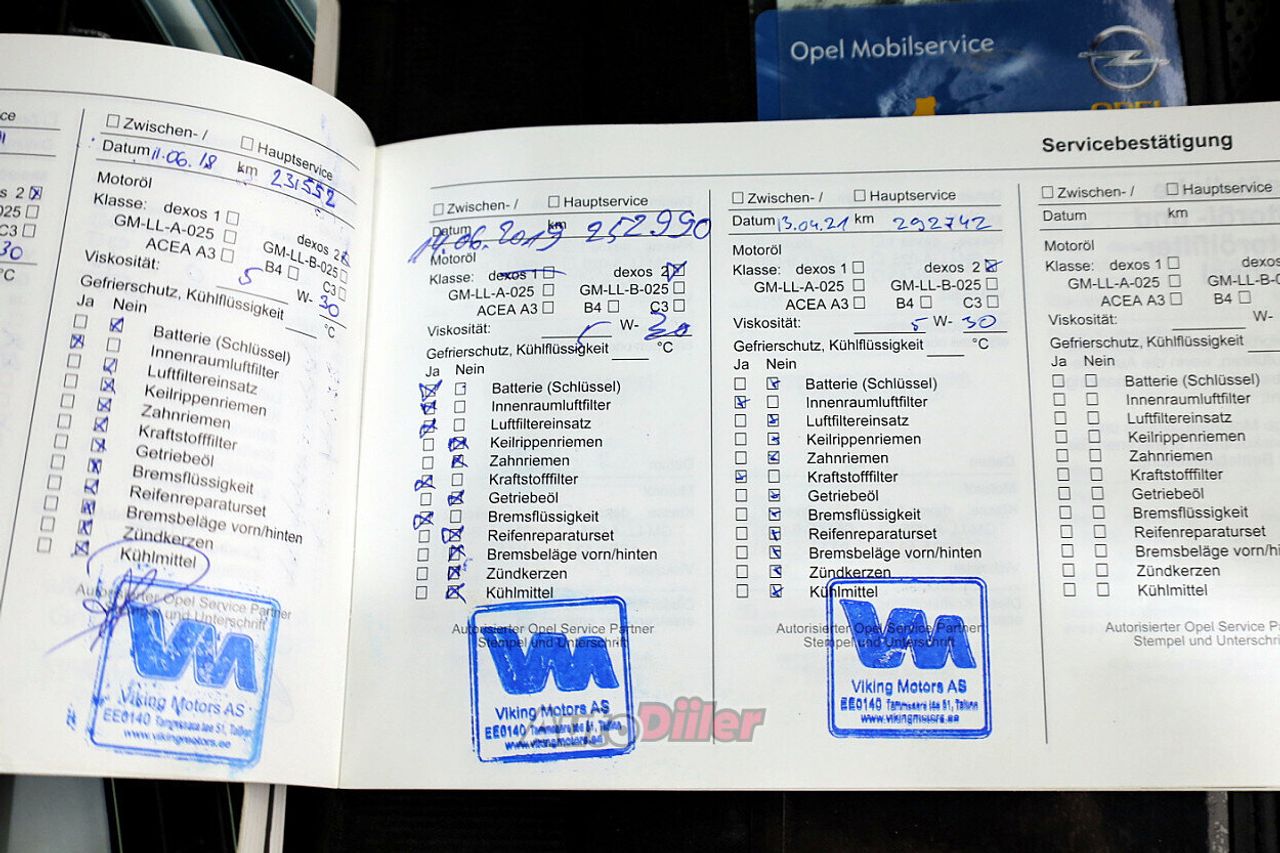 Opel Mobilservice
OPEL
Servicebestätigung
2 ☒
025 ☐
C3 ☐
30
°C
☐ Zwischen- / ☐ Hauptservice
Datum 11.06.18 km 231552
Motoröl
Klasse: dexos 1 ☐ dexos 2 ☒
GM-LL-A-025 ☐ GM-LL-B-025 ☐
ACEA A3 ☐ B4 ☐ C3 ☐
Viskosität: 5 W- 30
Gefrierschutz, Kühlflüssigkeit °C
Ja Nein
☐ ☒ Batterie (Schlüssel)
☒ ☐ Innenraumluftfilter
☐ ☒ Luftfiltereinsatz
☐ ☒ Keilrippenriemen
☐ ☒ Zahnriemen
☐ ☒ Kraftstofffilter
☐ ☒ Getriebeöl
☐ ☒ Bremsflüssigkeit
☐ ☒ Reifenreparaturset
☐ ☒ Bremsbeläge vorn/hinten
☐ ☒ Zündkerzen
☐ ☒ Kühlmittel
Autorisierter Opel Service Partner
und Unterschrift
Viking Motors AS
EE0140 Tammsaare tee 51, Tallinn
www.vikingmotors.ee
☐ Zwischen- / ☐ Hauptservice
Datum 11.06.2019 km 252990
Motoröl
Klasse: dexos 1 ☐ dexos 2 ☒
GM-LL-A-025 ☐ GM-LL-B-025 ☐
ACEA A3 ☐ B4 ☐ C3 ☐
Viskosität: 5 W- 30
Gefrierschutz, Kühlflüssigkeit °C
Ja Nein
☒ ☐ Batterie (Schlüssel)
☒ ☐ Innenraumluftfilter
☒ ☐ Luftfiltereinsatz
☐ ☒ Keilrippenriemen
☐ ☒ Zahnriemen
☒ ☐ Kraftstofffilter
☐ ☒ Getriebeöl
☒ ☐ Bremsflüssigkeit
☐ ☒ Reifenreparaturset
☐ ☒ Bremsbeläge vorn/hinten
☐ ☒ Zündkerzen
☐ ☒ Kühlmittel
Autorisierter Opel Service Partner
Stempel und Unterschrift
Viking Motors AS
EE0140 Tammsaare tee 51, Tallinn
www.vikingmotors.ee
AutoDiiler
☐ Zwischen- / ☐ Hauptservice
Datum 13.04.21 km 292742
Motoröl
Klasse: dexos 1 ☐ dexos 2 ☒
GM-LL-A-025 ☐ GM-LL-B-025 ☐
ACEA A3 ☐ B4 ☐ C3 ☐
Viskosität: 5 W- 30
Gefrierschutz, Kühlflüssigkeit °C
Ja Nein
☐ ☒ Batterie (Schlüssel)
☒ ☐ Innenraumluftfilter
☐ ☒ Luftfiltereinsatz
☐ ☒ Keilrippenriemen
☐ ☒ Zahnriemen
☒ ☐ Kraftstofffilter
☐ ☒ Getriebeöl
☐ ☒ Bremsflüssigkeit
☐ ☒ Reifenreparaturset
☐ ☒ Bremsbeläge vorn/hinten
☐ ☒ Zündkerzen
☐ ☒ Kühlmittel
Autorisierter Opel Service Partner
Stempel und Unterschrift
Viking Motors AS
EE0140 Tammsaare tee 51, Tallinn
www.vikingmotors.ee
☐ Zwischen- / ☐ Hauptservice
Datum km
Motoröl
Klasse: dexos 1 ☐ dexos
GM-LL-A-025 ☐ GM-LL-B-
ACEA A3 ☐ B4 ☐
Viskosität: W-
Gefrierschutz, Kühlflüssigkeit
Ja Nein
☐ ☐ Batterie (Schlüssel)
☐ ☐ Innenraumluftfilter
☐ ☐ Luftfiltereinsatz
☐ ☐ Keilrippenriemen
☐ ☐ Zahnriemen
☐ ☐ Kraftstofffilter
☐ ☐ Getriebeöl
☐ ☐ Bremsflüssigkeit
☐ ☐ Reifenreparaturset
☐ ☐ Bremsbeläge vorn/hi
☐ ☐ Zündkerzen
☐ ☐ Kühlmittel
Autorisierter Opel Service Pa
Stempel und Unterschrift